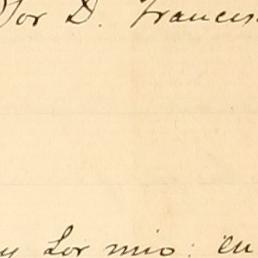 Sor D. Francis
y Sor mio: en